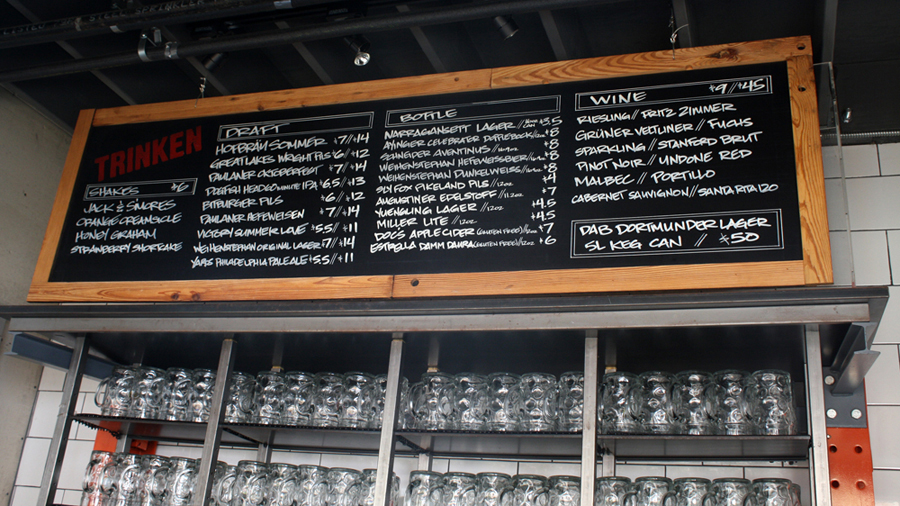 TRINKEN
SHAKES $6
JACK & S'MORES
ORANGE CREAMSICLE
HONEY GRAHAM
STRAWBERRY SHORTCAKE
DRAFT
HOFBRÄU SOMMER $7//$14
GREAT LAKES WRIGHT PILS $6//$12
PAULANER OKTOBERFEST $7//$14
DOGFISH HEAD 60 MINUTE IPA $6.5//$13
BITBURGER PILS $6//$12
PAULANER HEFEWEISEN $7//$14
VICTORY SUMMER LOVE $5.5//$11
WEIHENSTEPHAN ORIGINAL LAGER $7//$14
YARDS PHILADELPHIA PALE ALE $5.5//$11
BOTTLE
NARRAGANSETT LAGER // 16oz CAN $3.5
AYINGER CELEBRATER DOPPLEBOCK//12oz $8
SCHNEIDER AVENTINUS $8
WEIHENSTEPHAN HEFEWEISSBIER $8
WEIHENSTEPHAN DUNKELWEISS $8
SLY FOX PIKELAND PILS // 12oz $4
AUGUSTINER EDELSTOFF // 11.2oz $7
YUENGLING LAGER // 12oz $4.5
MILLER LITE // 12oz $4.5
DOC'S APPLE CIDER (GLUTEN FREE)//12oz $7
ESTRELLA DAMM DAURA (GLUTEN FREE)//12oz $6
WINE $9//$45
RIESLING // FRITZ ZIMMER
GRÜNER VELTLINER // FUCHS
SPARKLING // STANFORD BRUT
PINOT NOIR // UNDONE RED
MALBEC // PORTILLO
CABERNET SAUVIGNON // SANTA RITA 120
DAB DORTMUNDER LAGER
5L KEG CAN // $50